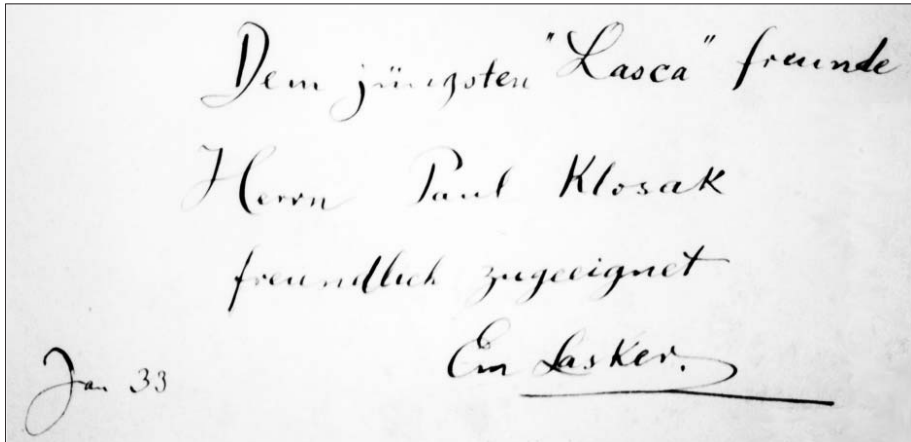 Dem jüngsten "Lasca" freunde
Herrn Paul Klosak
freundlich zugeeignet
Em Lasker.
Jan 33